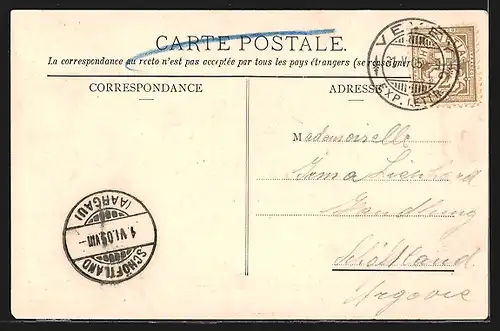 CARTE POSTALE.
La correspondance au recto n'est pas acceptée par tous les pays étrangers (se renseigner
CORRESPONDANCE
ADRESSE
VEVEY
31.V.05
EXP. LETTR.
Mademoiselle
Irma Lienhard
Handlung
Schöftland
Argovie
SCHÖFTLAND
1.VI.05.VIII
(AARGAU)